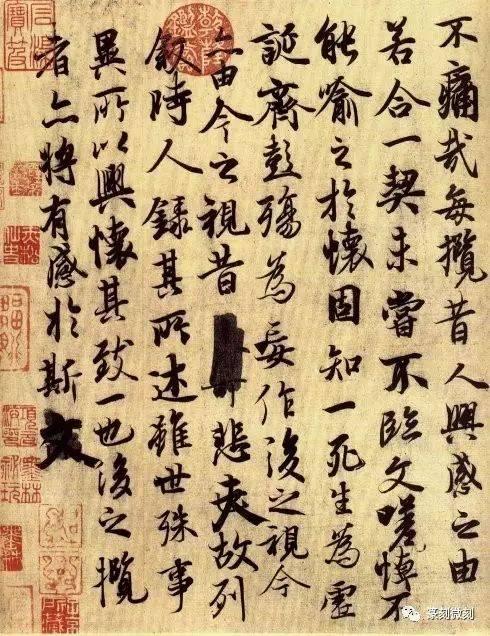 不痛哉每攬昔人興感之由
若合一契未嘗不臨文嗟悼不
能喻之於懷固知一死生為虛
誕齊彭殤為妄作後之視今
亦由今之視昔悲夫故列
敘時人錄其所述雖世殊事
異所以興懷其致一也後之攬
者亦將有感於斯文
篆刻微刻